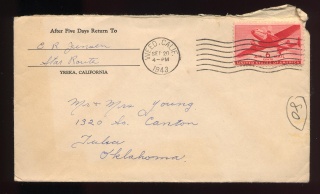 After Five Days Return To
Star Route
YREKA, CALIFORNIA
WEED, CALIF.
SEP 20
4-PM
1943
UNITED STATES OF AMERICA
6
Mr & Mrs Young
1320 So. Canton
Tulsa
Oklahoma.
80